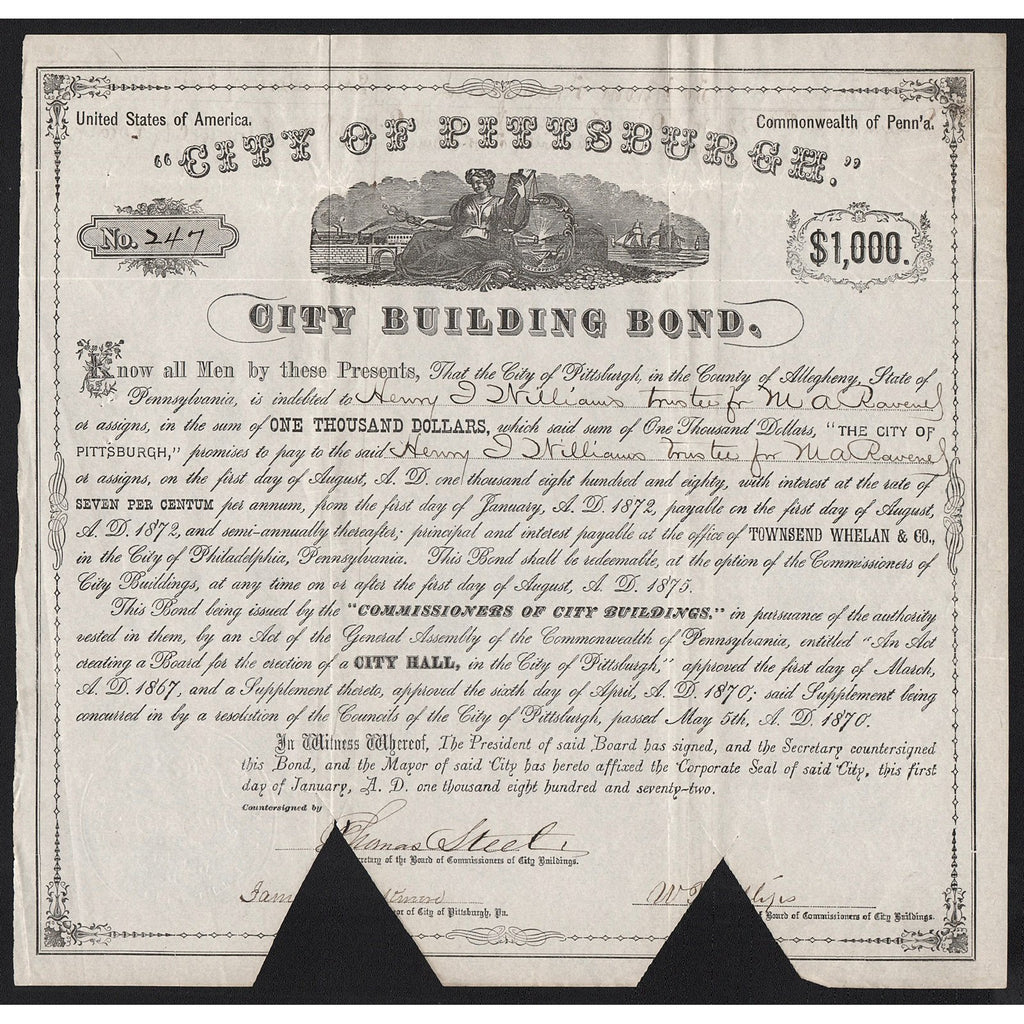 United States of America.
Commonwealth of Penn'a.
"CITY OF PITTSBURGH."
No. 247
$1,000.
CITY BUILDING BOND.
Know all Men by these Presents, That the City of Pittsburgh, in the County of Allegheny, State of
Pennsylvania, is indebted to Henry J Williams trustee for M A Ravenel
or assigns, in the sum of ONE THOUSAND DOLLARS, which said sum of One Thousand Dollars, "THE CITY OF
PITTSBURGH," promises to pay to the said Henry J Williams trustee for M A Ravenel
or assigns, on the first day of August, A. D. one thousand eight hundred and eighty, with interest at the rate of
SEVEN PER CENTUM per annum, from the first day of January, A. D. 1872, payable on the first day of August,
A. D. 1872, and semi-annually thereafter; principal and interest payable at the office of TOWNSEND WHELAN & CO.,
in the City of Philadelphia, Pennsylvania. This Bond shall be redeemable, at the option of the Commissioners of
City Buildings, at any time on or after the first day of August, A. D. 1875.
This Bond being issued by the "COMMISSIONERS OF CITY BUILDINGS." in pursuance of the authority
vested in them, by an Act of the General Assembly of the Commonwealth of Pennsylvania, entitled "An Act
creating a Board for the erection of a CITY HALL, in the City of Pittsburgh," approved the first day of March,
A. D. 1867, and a Supplement thereto, approved the sixth day of April, A. D. 1870; said Supplement being
concurred in by a resolution of the Councils of the City of Pittsburgh, passed May 5th, A. D. 1870.
In Witness Whereof, The President of said Board has signed, and the Secretary countersigned
this Bond, and the Mayor of said City has hereto affixed the Corporate Seal of said City, this first
day of January, A. D. one thousand eight hundred and seventy-two.
Countersigned by
Thomas Steel
retary of the Board of Commissioners of City Buildings.
Jam
or of City of Pittsburgh, Pa.
Board of Commissioners of City Buildings.